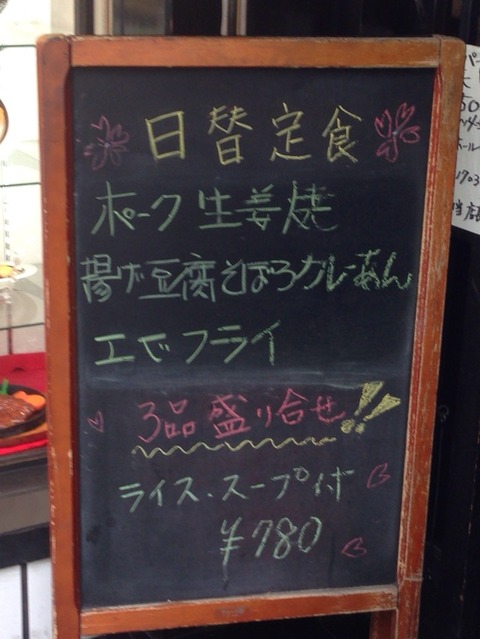 日替定食
ポーク生姜焼
揚げ豆腐そぼろカレーあん
エビフライ
3品盛り合せ!!
ライス、スープ付
¥780